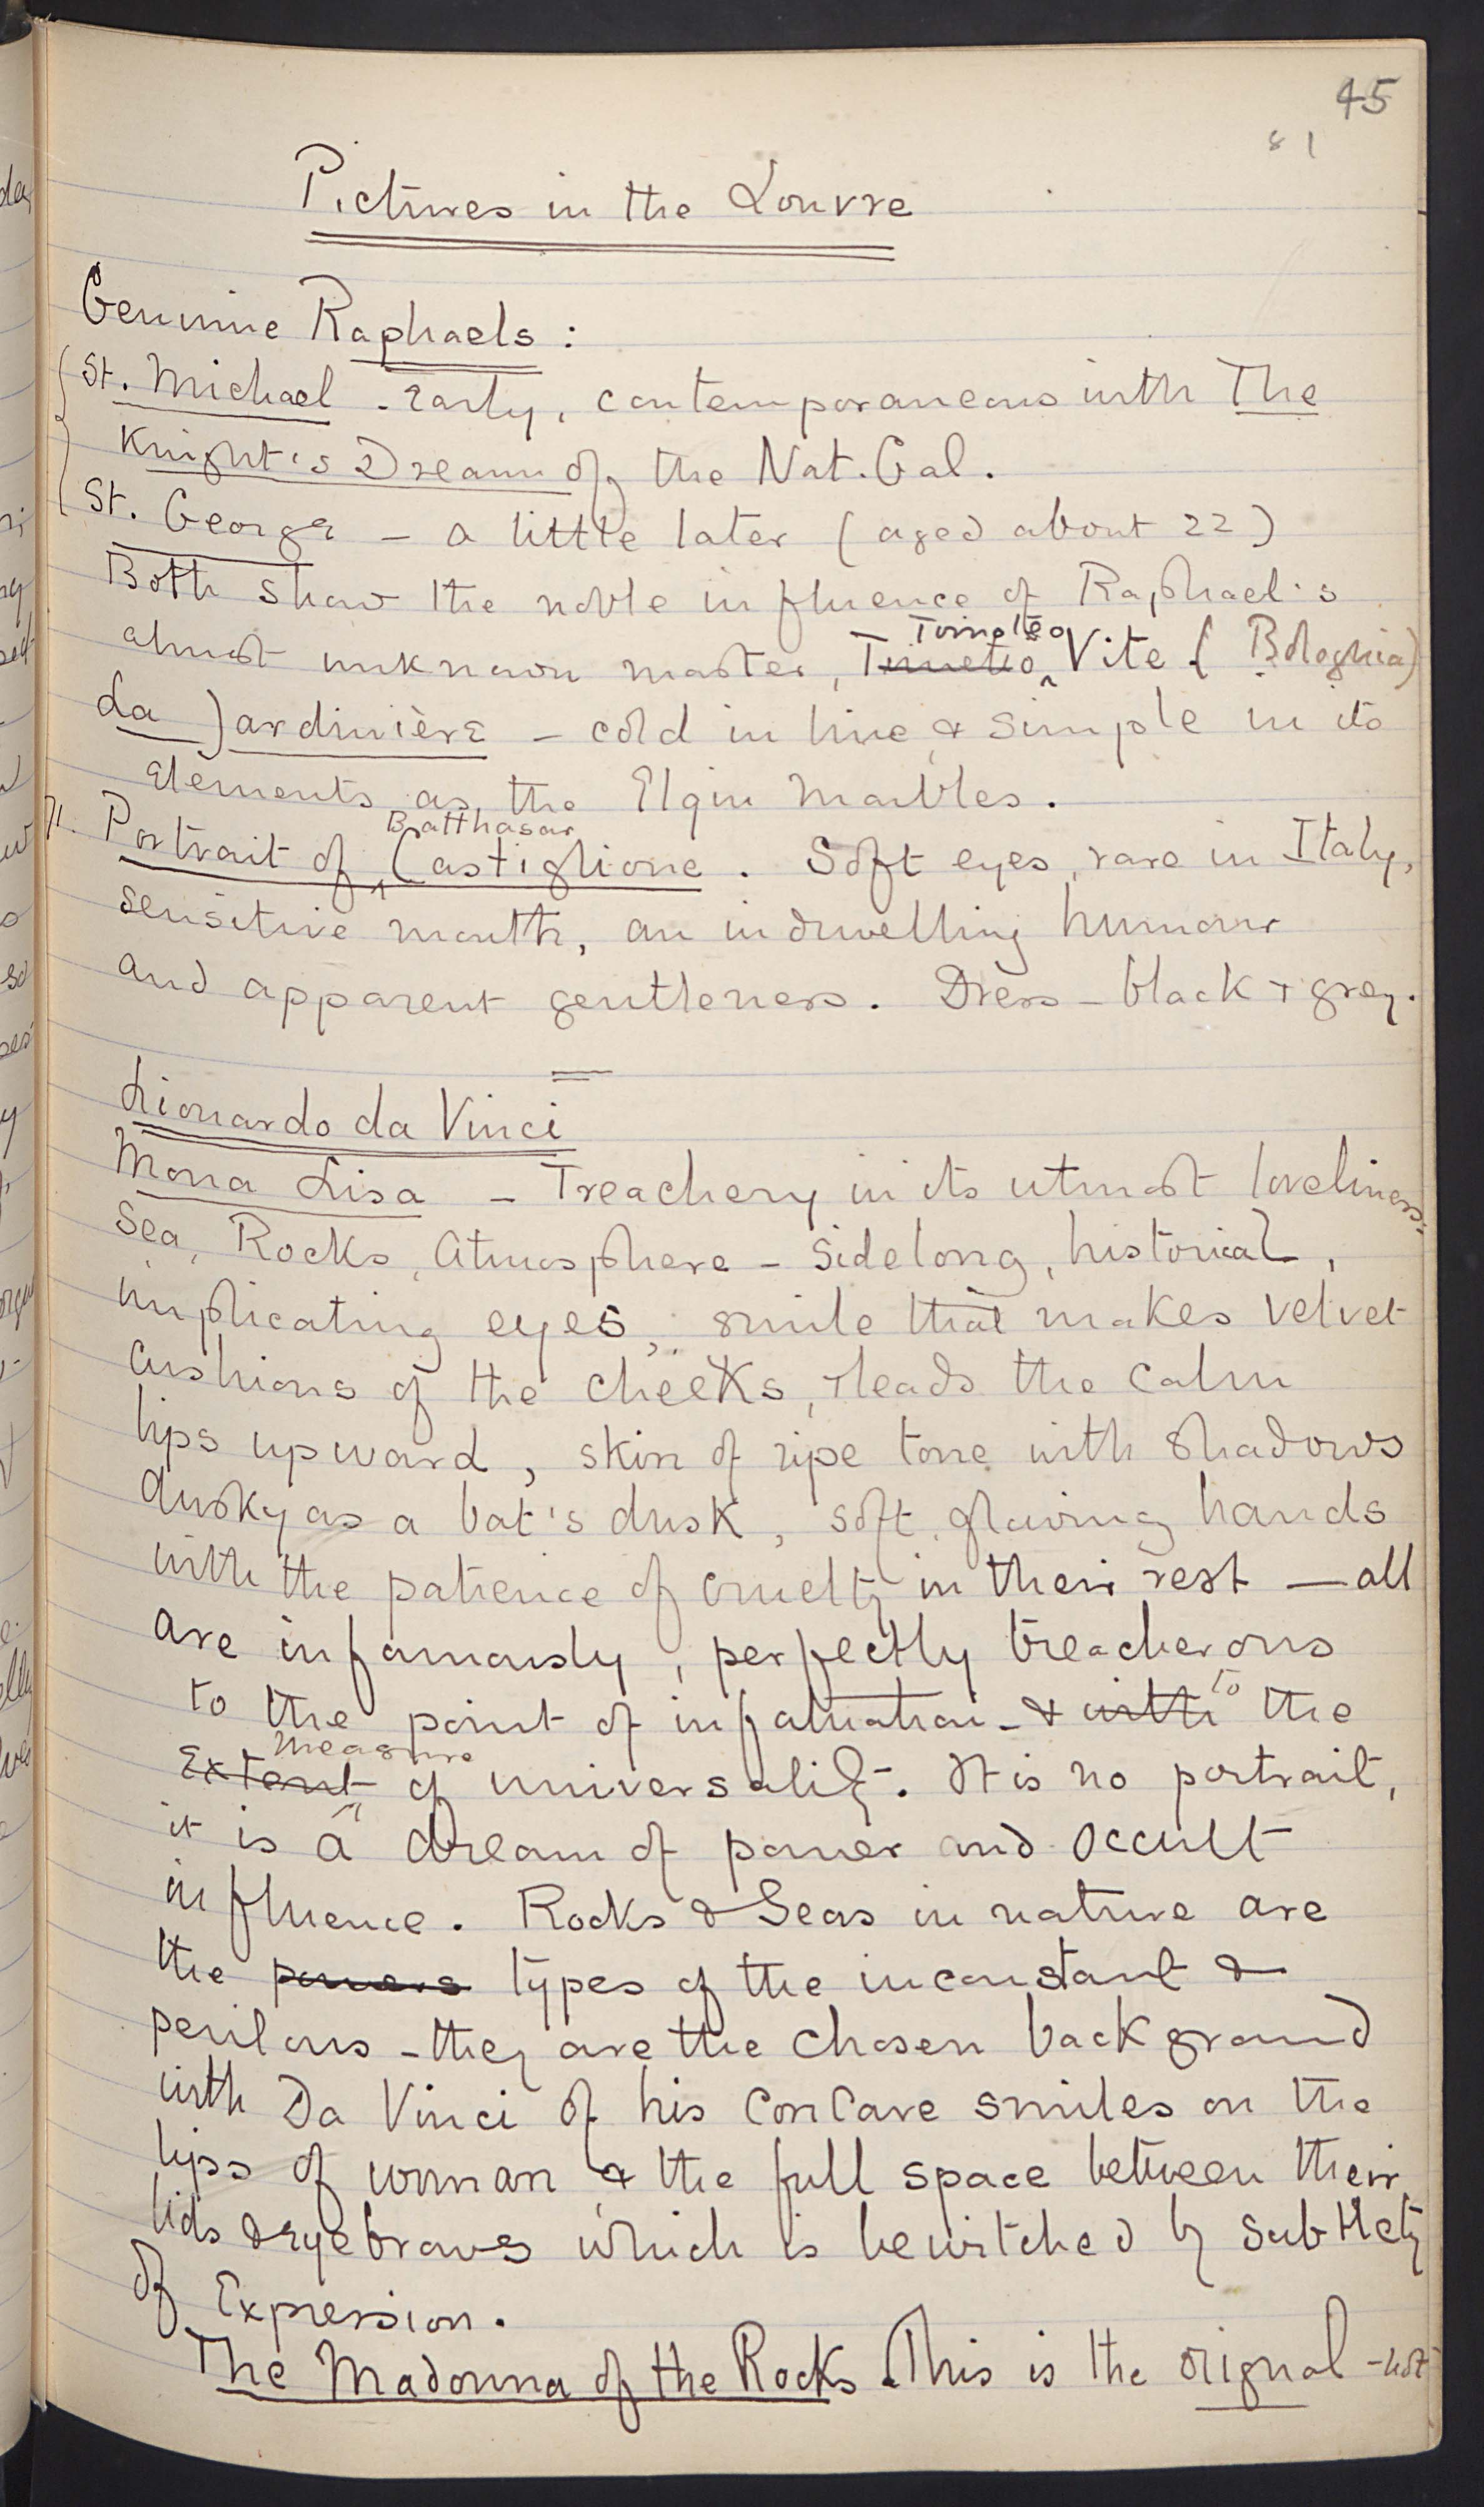 45
81
Pictures in the Louvre
Genuine Raphaels:
St. Michael - Early, contemporaneous with The
Knight's Dream of the Nat. Gal.
St. George - a little later (aged about 22)
Both show the noble influence of Raphael's
Timoteo
almost unknown master, Vite (Bologna)
La Jardinière - cold in line & simple in its
Elements as the Elgin Marbles.
Balthasar
Portrait of Castiglione. Soft eyes, rare in Italy,
sensitive mouth, an indwelling humour
and apparent gentleness. Dress - black & grey.
Lionardo da Vinci
Mona Lisa - Treachery in its utmost loveliness.
Sea, Rocks, Atmosphere - Sidelong, historical,
implicating eyes, smile that makes velvet
cushions of the cheeks, & leads the calm
lips upward, skin of ripe tone with shadows
dusky as a bat's dusk, soft hands
with the patience of cruelty in their rest - all
are infamously, perfectly treacherous
to the point of infatuation - & with to the
measure
Extent of universality. It is no portrait,
it is a dream of power and occult
influence. Rocks & Seas in nature are
the powers types of the inconstant &
perilous - they are the chosen background
with Da Vinci of his concave smiles on the
lips of woman & the full space between their
lids & eyebrows which is bewitched by subtlety
of Expression.
The Madonna of the Rocks. This is the orignal - not